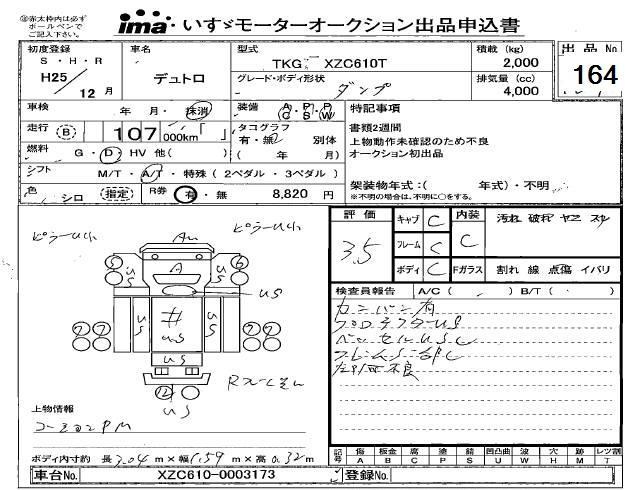 ㊟赤太枠内は必ず
ボールペンで
ご記入下さい。
ima・いすゞモーターオークション出品申込書
初度登録
S・H・R
H25/12月
車名
デュトロ
型式
TKG XZC610T
グレード・ボディ形状
ダンプ
積載 (kg)
2,000
排気量 (cc)
4,000
出品No.
164
車検
年 月・抹消
装備
A・P・P
C S W
走行 (B) 107,000km
タコグラフ
有・無 別体
( 年 月)
燃料
G・D・HV 他( )
シフト
M/T・A/T・特殊(2ペダル・3ペダル)
色
シロ (指定)
R券
有・無 8,820 円
特記事項
書類2週間
上物動作未確認のため不良
オークション初出品
架装物年式:( 年式)・不明
※不明の場合は、不明に○をする。
評価
3.5
キャブ C
フレーム C
ボディ C
内装
C
汚れ 破れ ヤニ スレ
Fガラス
割れ 線 点傷 イバリ
検査員報告 A/C( . ) B/T( ・ )
カンバン有
ピラーUん
ピラーUん
US
US
US
US
US
上物情報
ボディ内寸約 長3.04m×幅1.59m×高0.32m
記号 傷 板金 腐 塗 錆 凹凸曲 波 穴 跡 レツ割
A B C P S U W H M T
車台No. XZC610-0003173
登録No.